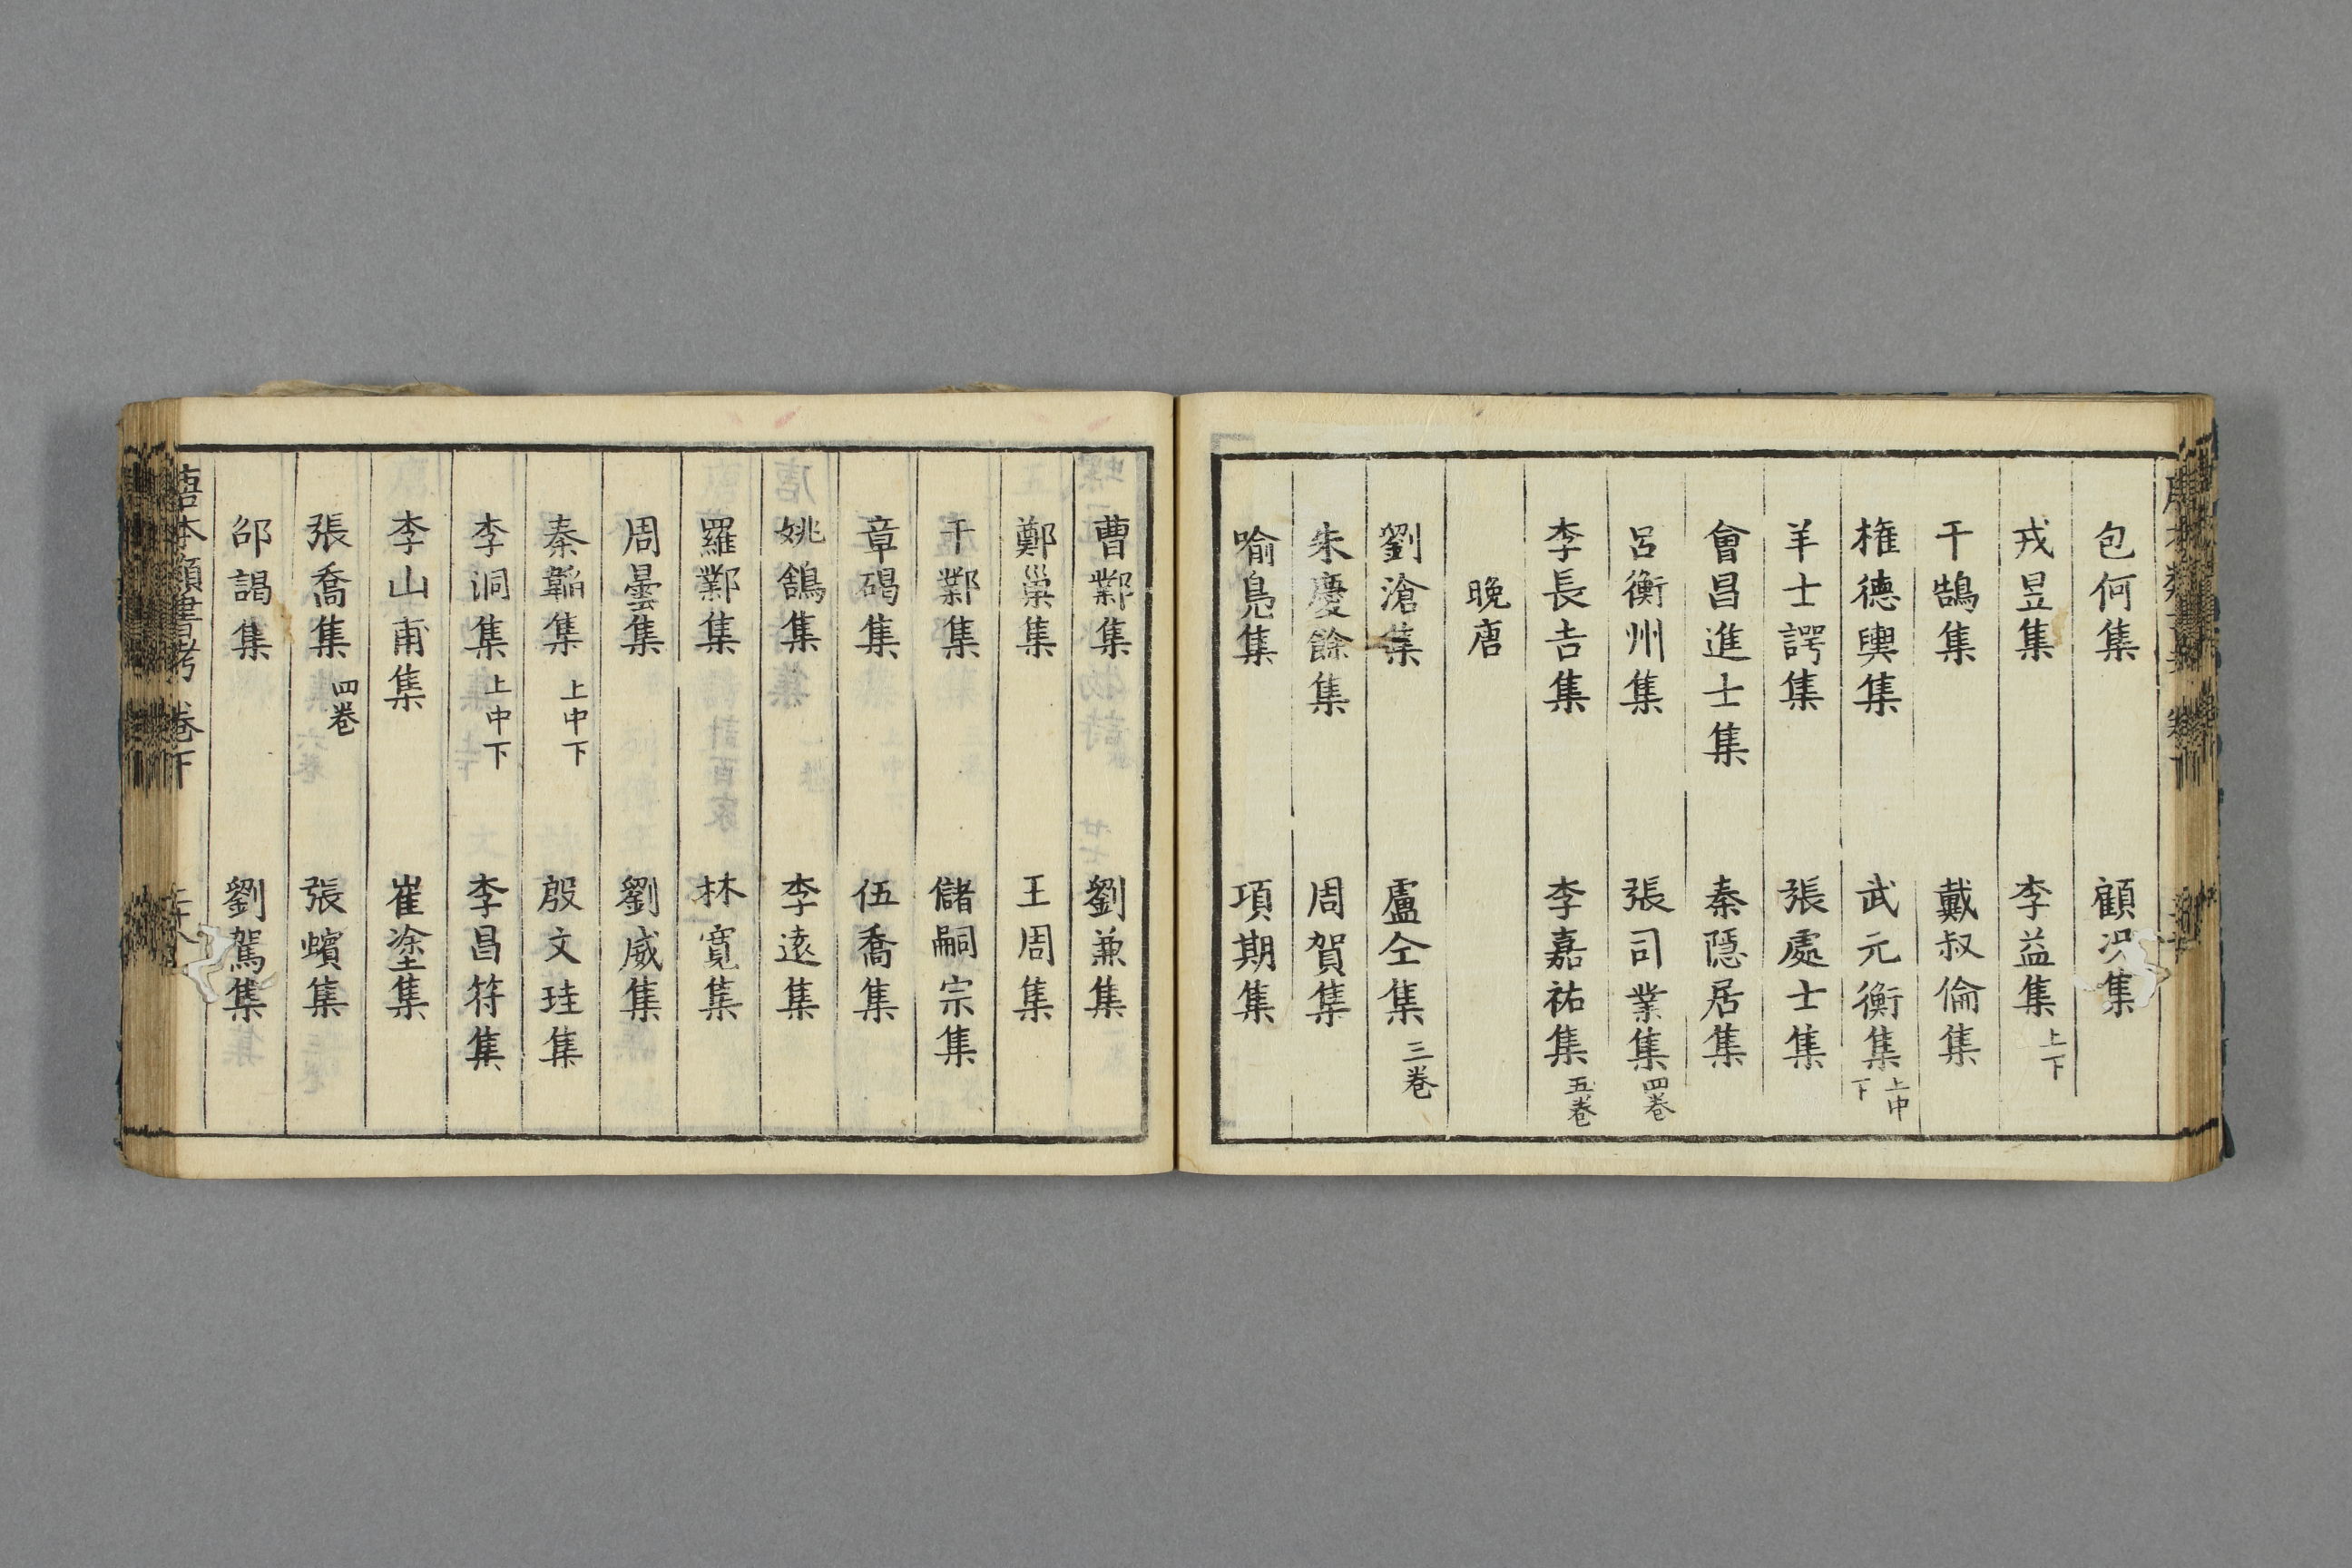 包何集 顧况集
戎昱集 李益集 上下
干鵠集 戴叔倫集
権德輿集 武元衡集 上中下
羊士諤集 張處士集
會昌進士集 秦隱居集
呂衡州集 張司業集 四卷
李長吉集 李嘉祐集 五卷
晚唐
劉滄集 盧仝集 三卷
朱慶餘集 周賀集
喻鳧集 項期集
曹鄴集 劉兼集
鄭巢集 王周集
于鄴集 儲嗣宗集
章碣集 伍喬集
姚鵠集 李遠集
羅鄴集 林寬集
周曇集 劉威集
秦韜集 上中下 殷文珪集
李洞集 上中下 李昌符集
李山甫集 崔塗集
張喬集 四卷 張蠙集
邵謁集 劉駕集
唐本類書考 卷下